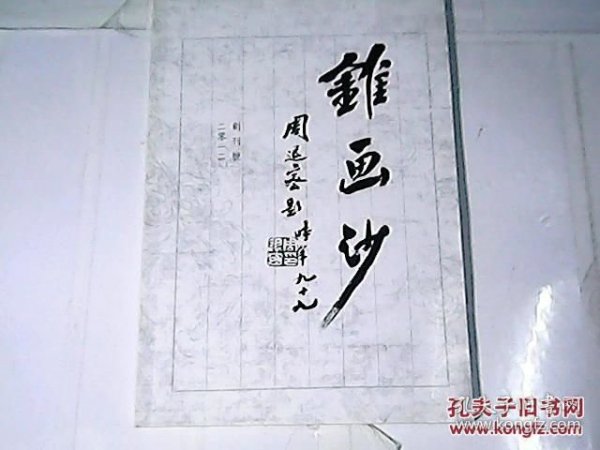 錐画沙
周退密题
時年九十九
創刊號
二零一二
孔夫子旧书网
www.kongfz.com